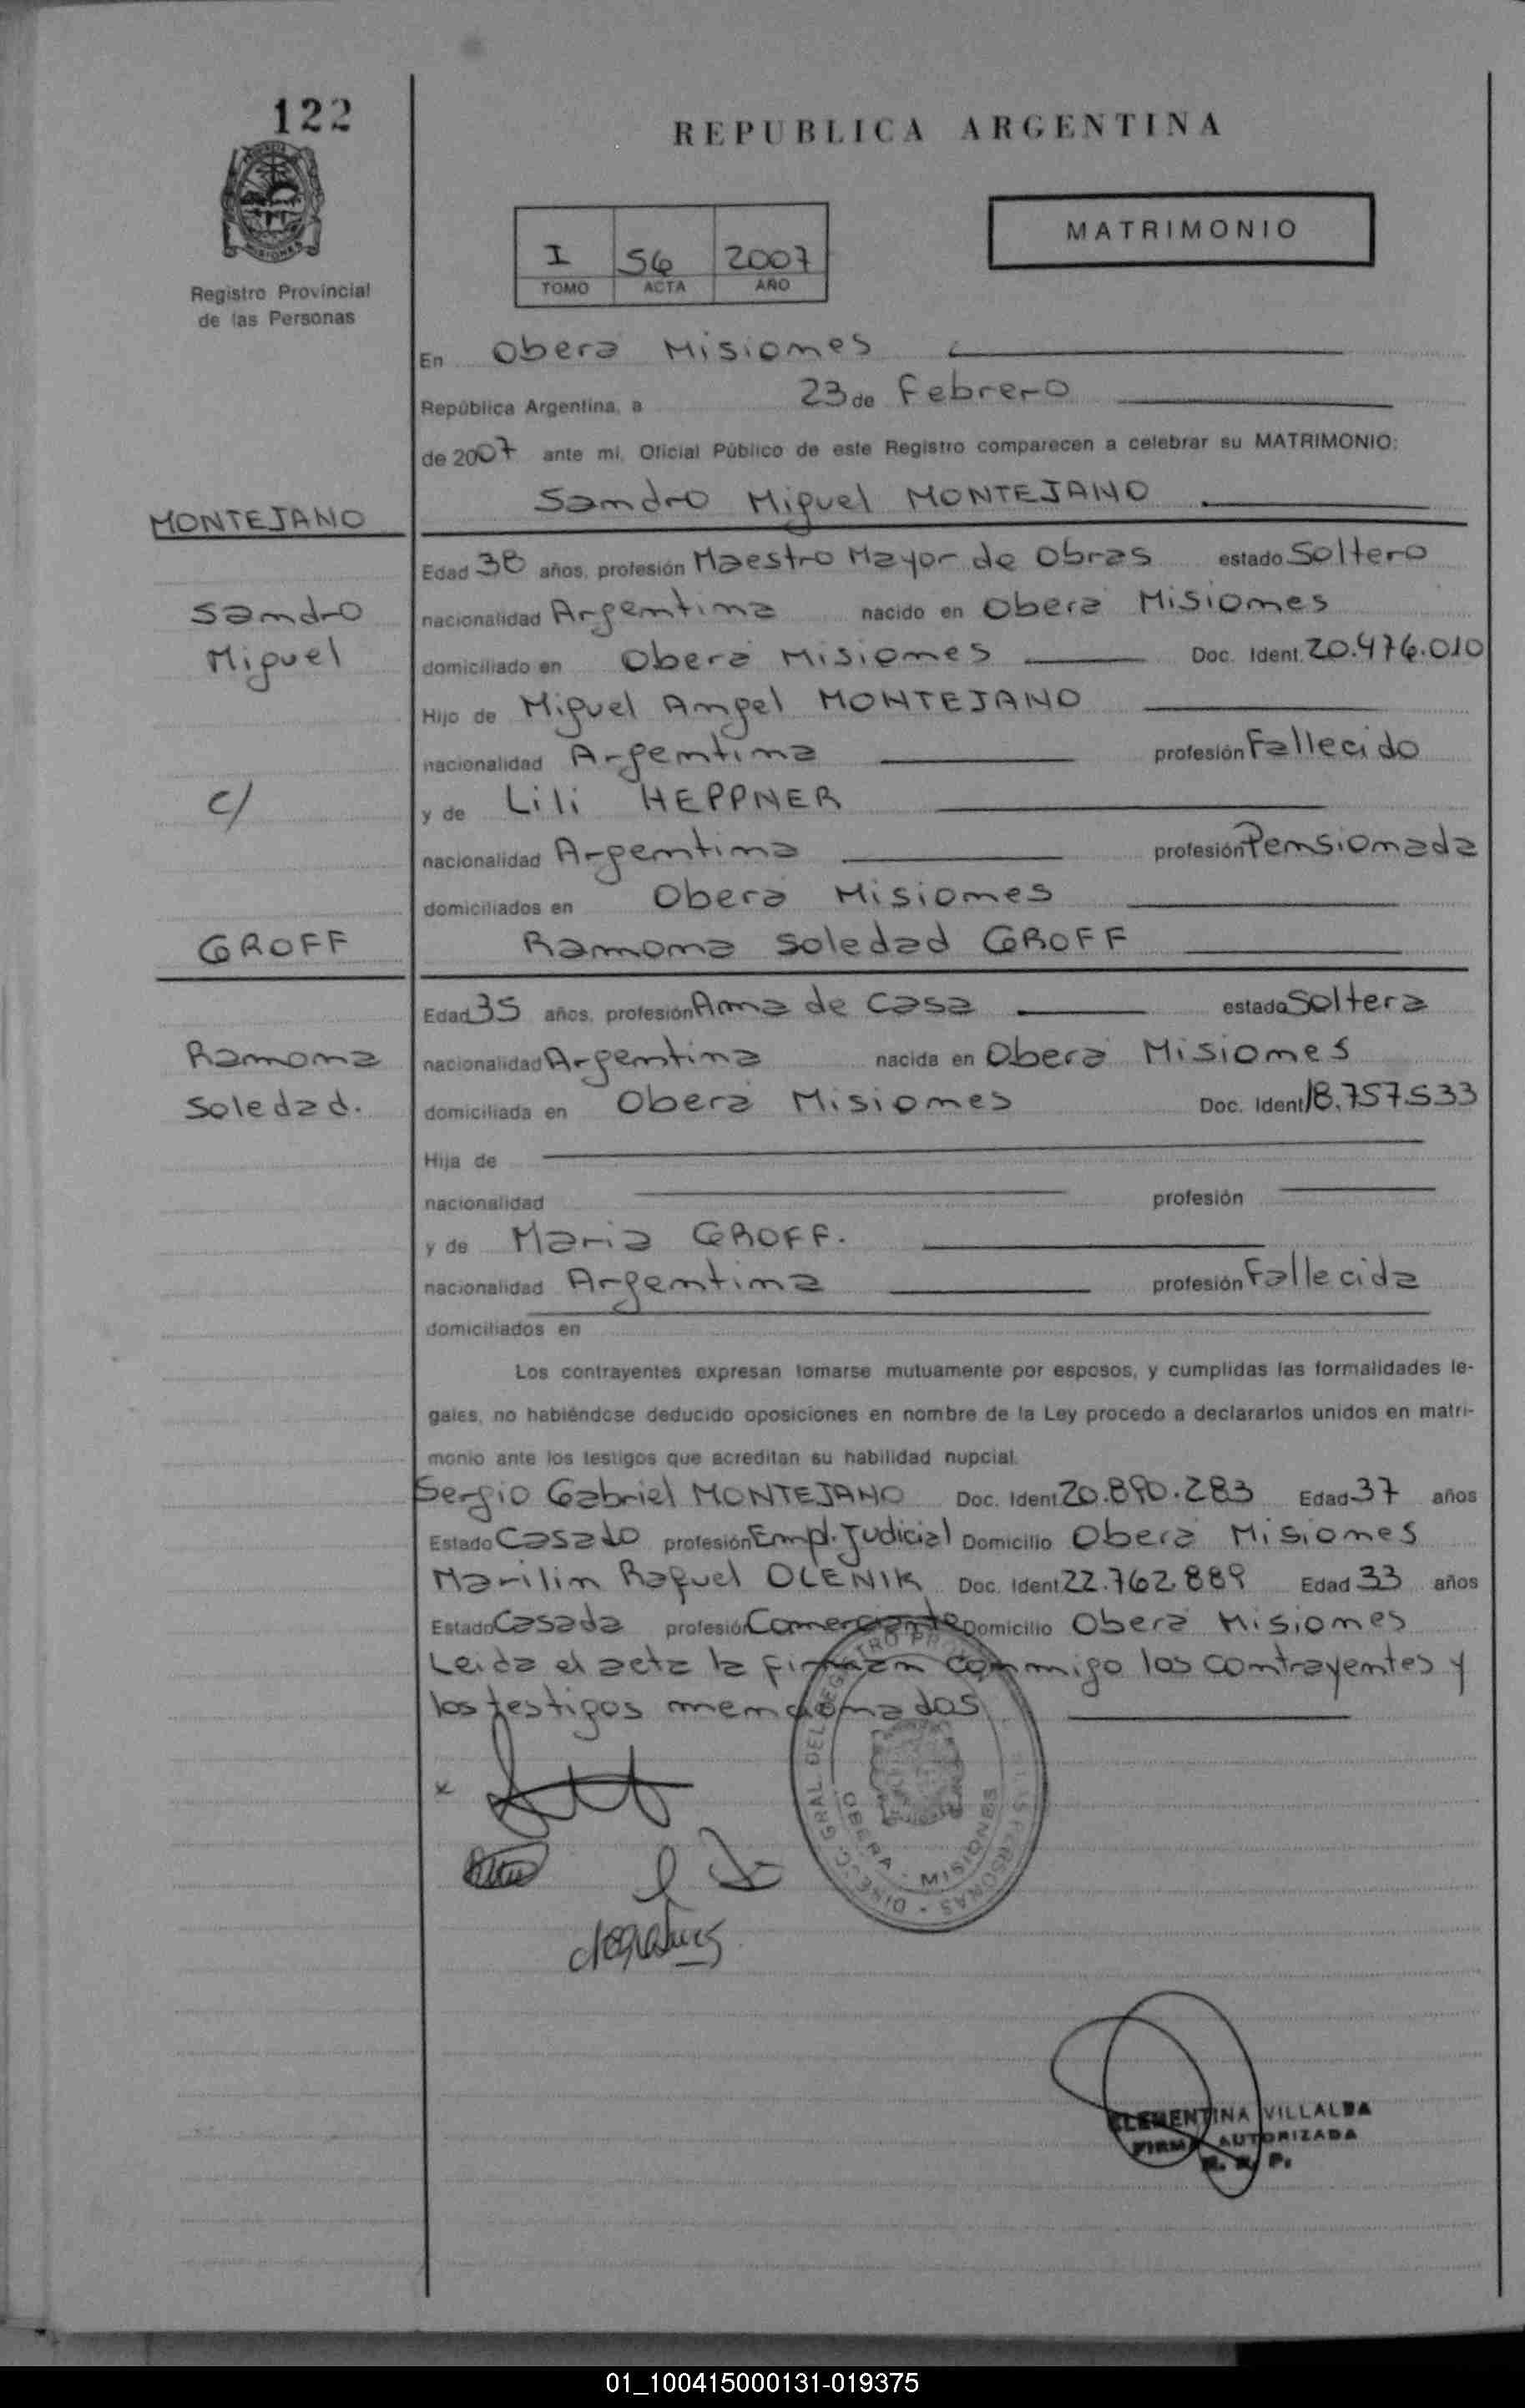 122
REPUBLICA ARGENTINA
MATRIMONIO
I 56 2007
TOMO ACTA AÑO
Registro Provincial
de las Personas
En Obera Misiones
República Argentina, a 23 de Febrero
de 2007 ante mi, Oficial Público de este Registro comparecen a celebrar su MATRIMONIO:
Sandro Miguel MONTEJANO
MONTEJANO
Edad 38 años, profesión Maestro Mayor de Obras estado Soltero
Sandro
nacionalidad Argentina nacido en Oberá Misiones
Miguel
domiciliado en Oberá Misiones Doc. Ident. 20.476.010
Hijo de Miguel Angel MONTEJANO
nacionalidad Argentina profesión Fallecido
c/
y de Lili HEPPNER
nacionalidad Argentina profesión Pensionada
domiciliados en Oberá Misiones
GROFF
Ramona Soledad GROFF
Edad 35 años, profesión Ama de Casa estado Soltera
Ramona
nacionalidad Argentina nacida en Oberá Misiones
Soledad.
domiciliada en Oberá Misiones Doc. Ident 18.757.533
Hija de
nacionalidad profesión
y de Maria GROFF.
nacionalidad Argentina profesión Fallecida
domiciliados en
Los contrayentes expresan tomarse mutuamente por esposos, y cumplidas las formalidades le-
gales, no habiéndose deducido oposiciones en nombre de la Ley procedo a declararlos unidos en matri-
monio ante los testigos que acreditan su habilidad nupcial.
Sergio Gabriel MONTEJANO Doc. Ident 20.890.283 Edad 37 años
Estado Casado profesión Empl. Judicial Domicilio Oberá Misiones
Marilin Raquel OLENIK Doc. Ident 22.762.889 Edad 33 años
Estado Casada profesión Comerciante Domicilio Oberá Misiones
Leida el acta la firman conmigo los contrayentes y
los testigos mencionados
DIRECC. GRAL. DEL REGISTRO PROV. DE LAS PERSONAS
OBERA - MISIONES
CLEMENTINA VILLALBA
FIRMA AUTORIZADA
R. P. P.
01_100415000131-019375